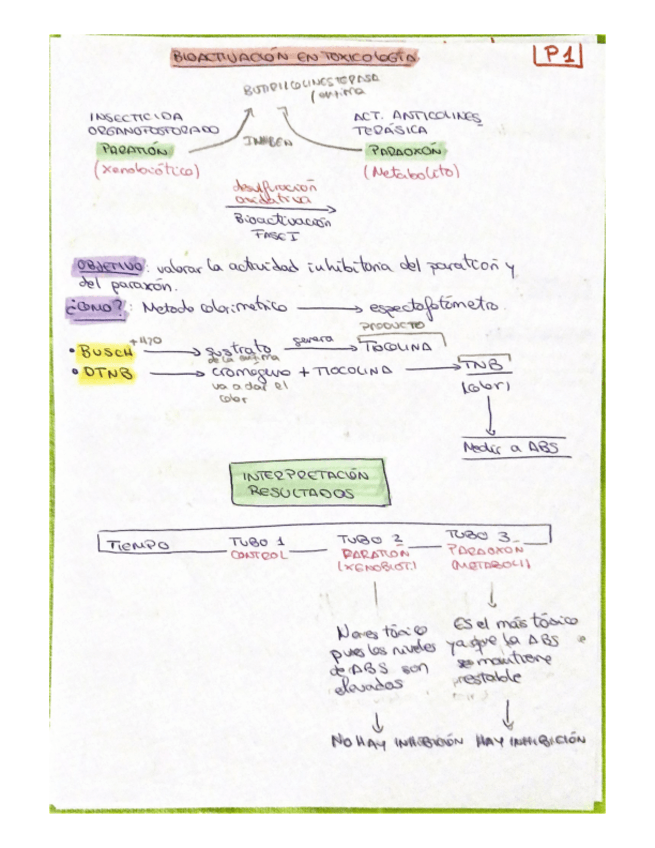 BIOACTIVACIÓN EN TOXICOLOGÍA
P1
BUTIRILCOLINESTERASA
INSECTICIDA
ORGANOFOSFORADO
PARATIÓN
(xenobiótico)
INHIBEN
ACT. ANTICOLINES_
TERÁSICA
PARAOXÓN
(Metabolito)
desulfuración
oxidativa
Bioactivación
FASE I
OBJETIVO: valorar la actividad inhibitoria del paratión y
del paraxón.
¿CÓMO?: Metodo colorimetrico → espectofotómetro
PRODUCTO
• BUSCH +H2O → sustrato genera → TIOCOLINA
de la enzima
• DTNB → cromógeno + TIOCOLINA → TNB
va a dar el
color
(color)
Medir a ABS
INTERPRETACIÓN
RESULTADOS
TIEMPO TUBO 1 TUBO 2 TUBO 3
CONTROL PARATIÓN PARAOXÓN
(XENOBIOT.) (METABOLI)
No es tóxico
pues los niveles
de ABS son
elevados
Es el más tóxico
ya que la ABS
se mantiene
estable
NO HAY INHIBICIÓN HAY INHIBICIÓN